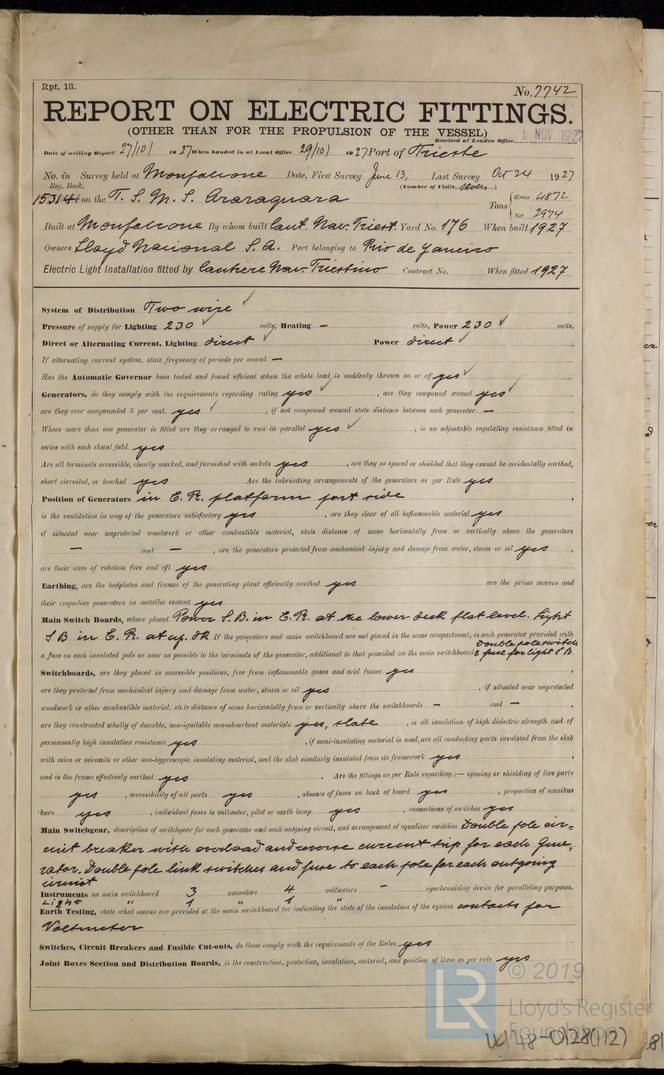 Rpt. 13.
No. 7742
REPORT ON ELECTRIC FITTINGS.
(OTHER THAN FOR THE PROPULSION OF THE VESSEL)
Received at London Office 1 NOV 1927
Date of writing Report 27/10/ 1927 When handed in at Local Office 29/10/ 1927 Port of Trieste
No. in Survey held at Monfalcone Date, First Survey June 13, Last Survey Oct 24 1927
Reg. Book. (Number of Visits
15314 on the T. S. M. S. Araraquara Tons { Gross 4872
Net 2974
Built at Monfalcone By whom built Cant. Nav. Triest. Yard No. 176 When built 1927
Owners Lloyd Nacional S. A. Port belonging to Rio de Janeiro
Electric Light Installation fitted by Cantiere Nav. Triestino Contract No. When fitted 1927
System of Distribution Two wire ✓
Pressure of supply for Lighting 230 ✓ volts, Heating – volts, Power 230 ✓ volts,
Direct or Alternating Current, Lighting direct ✓ Power direct ✓
If alternating current system, state frequency of periods per second –
Has the Automatic Governor been tested and found efficient when the whole load is suddenly thrown on or off yes ✓
Generators, do they comply with the requirements regarding rating yes ✓, are they compound wound yes ✓
are they over compounded 5 per cent. yes ✓, if not compound wound state distance between each generator –
Where more than one generator is fitted are they arranged to run in parallel yes ✓, is an adjustable regulating resistance fitted in
series with each shunt field yes
Are all terminals accessible, clearly marked, and furnished with sockets yes, are they so spaced or shielded that they cannot be accidentally earthed,
short circuited, or touched yes Are the lubricating arrangements of the generators as per Rule yes
Position of Generators in E. R. platform port side
is the ventilation in way of the generators satisfactory yes, are they clear of all inflammable material yes
if situated near unprotected woodwork or other combustible material, state distance of same horizontally from or vertically above the generators
– and –, are the generators protected from mechanical injury and damage from water, steam or oil yes,
are their axes of rotation fore and aft yes
Earthing, are the bedplates and frames of the generating plant efficiently earthed yes are the prime movers and
their respective generators in metallic contact yes
Main Switch Boards, where placed Power S.B. in E.R. at the lower deck flat level. Light
S B in E. R. at up. dk If the generators and main switchboard are not placed in the same compartment, is each generator provided with
a fuse on each insulated pole as near as possible to the terminals of the generator, additional to that provided on the main switchboard Double pole switch
& fuse for light S.B.
Switchboards, are they placed in accessible positions, free from inflammable gases and acid fumes yes
are they protected from mechanical injury and damage from water, steam or oil yes, if situated near unprotected
woodwork or other combustible material, state distance of same horizontally from or vertically above the switchboards – and –,
are they constructed wholly of durable, non-ignitable non-absorbent materials yes, slate, is all insulation of high dielectric strength and of
permanently high insulation resistance yes, if semi-insulating material is used, are all conducting parts insulated from the slab
with mica or micanite or other non-hygroscopic insulating material, and the slab similarly insulated from its framework yes,
and is the frame effectively earthed yes. Are the fittings as per Rule regarding :— spacing or shielding of live parts
yes, accessibility of all parts yes, absence of fuses on back of board yes, proportion of omnibus
bars yes, individual fuses to voltmeter, pilot or earth lamp yes, connections of switches yes
Main Switchgear, description of switchgear for each generator and each outgoing circuit, and arrangement of equalizer switches Double pole cir-
cuit breaker with overload and reverse current trip for each gene-
rator. Double pole link switches and fuse to each pole for each outgoing
circuit
Instruments on main switchboard 3 ammeters 4 voltmeters – synchronising device for paralleling purposes.
Light " 1 " 1 "
Earth Testing, state what means are provided at the main switchboard for indicating the state of the insulation of the system contacts for
Voltmeter
Switches, Circuit Breakers and Fusible Cut-outs, do these comply with the requirements of the Rules yes
Joint Boxes Section and Distribution Boards, is the construction, protection, insulation, material, and position of these as per rule yes
LR © 2019
Lloyd's Register
Foundation